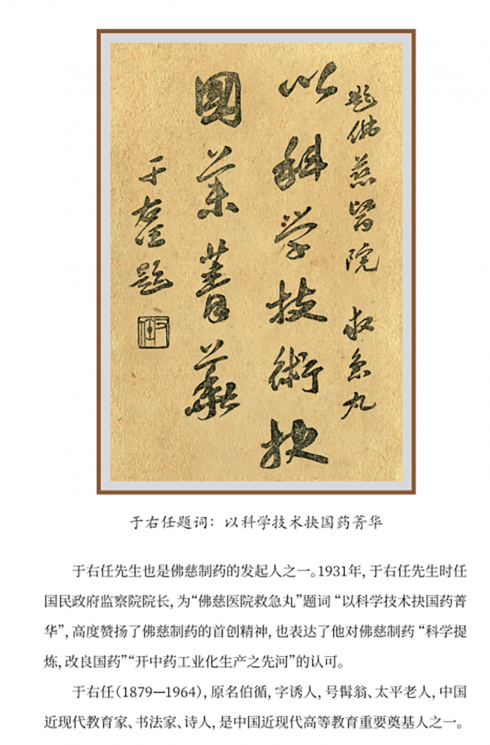 題佛慈醫院 救急丸
以科學技術抉
國藥菁華
于右任題
于右任题词：以科学技术抉国药菁华
于右任先生也是佛慈制药的发起人之一。1931年，于右任先生时任
国民政府监察院院长，为“佛慈医院救急丸”题词“以科学技术抉国药菁
华”，高度赞扬了佛慈制药的首创精神，也表达了他对佛慈制药“科学提
炼，改良国药”“开中药工业化生产之先河”的认可。
于右任（1879—1964），原名伯循，字诱人，号髯翁、太平老人，中国
近现代教育家、书法家、诗人，是中国近现代高等教育重要奠基人之一。